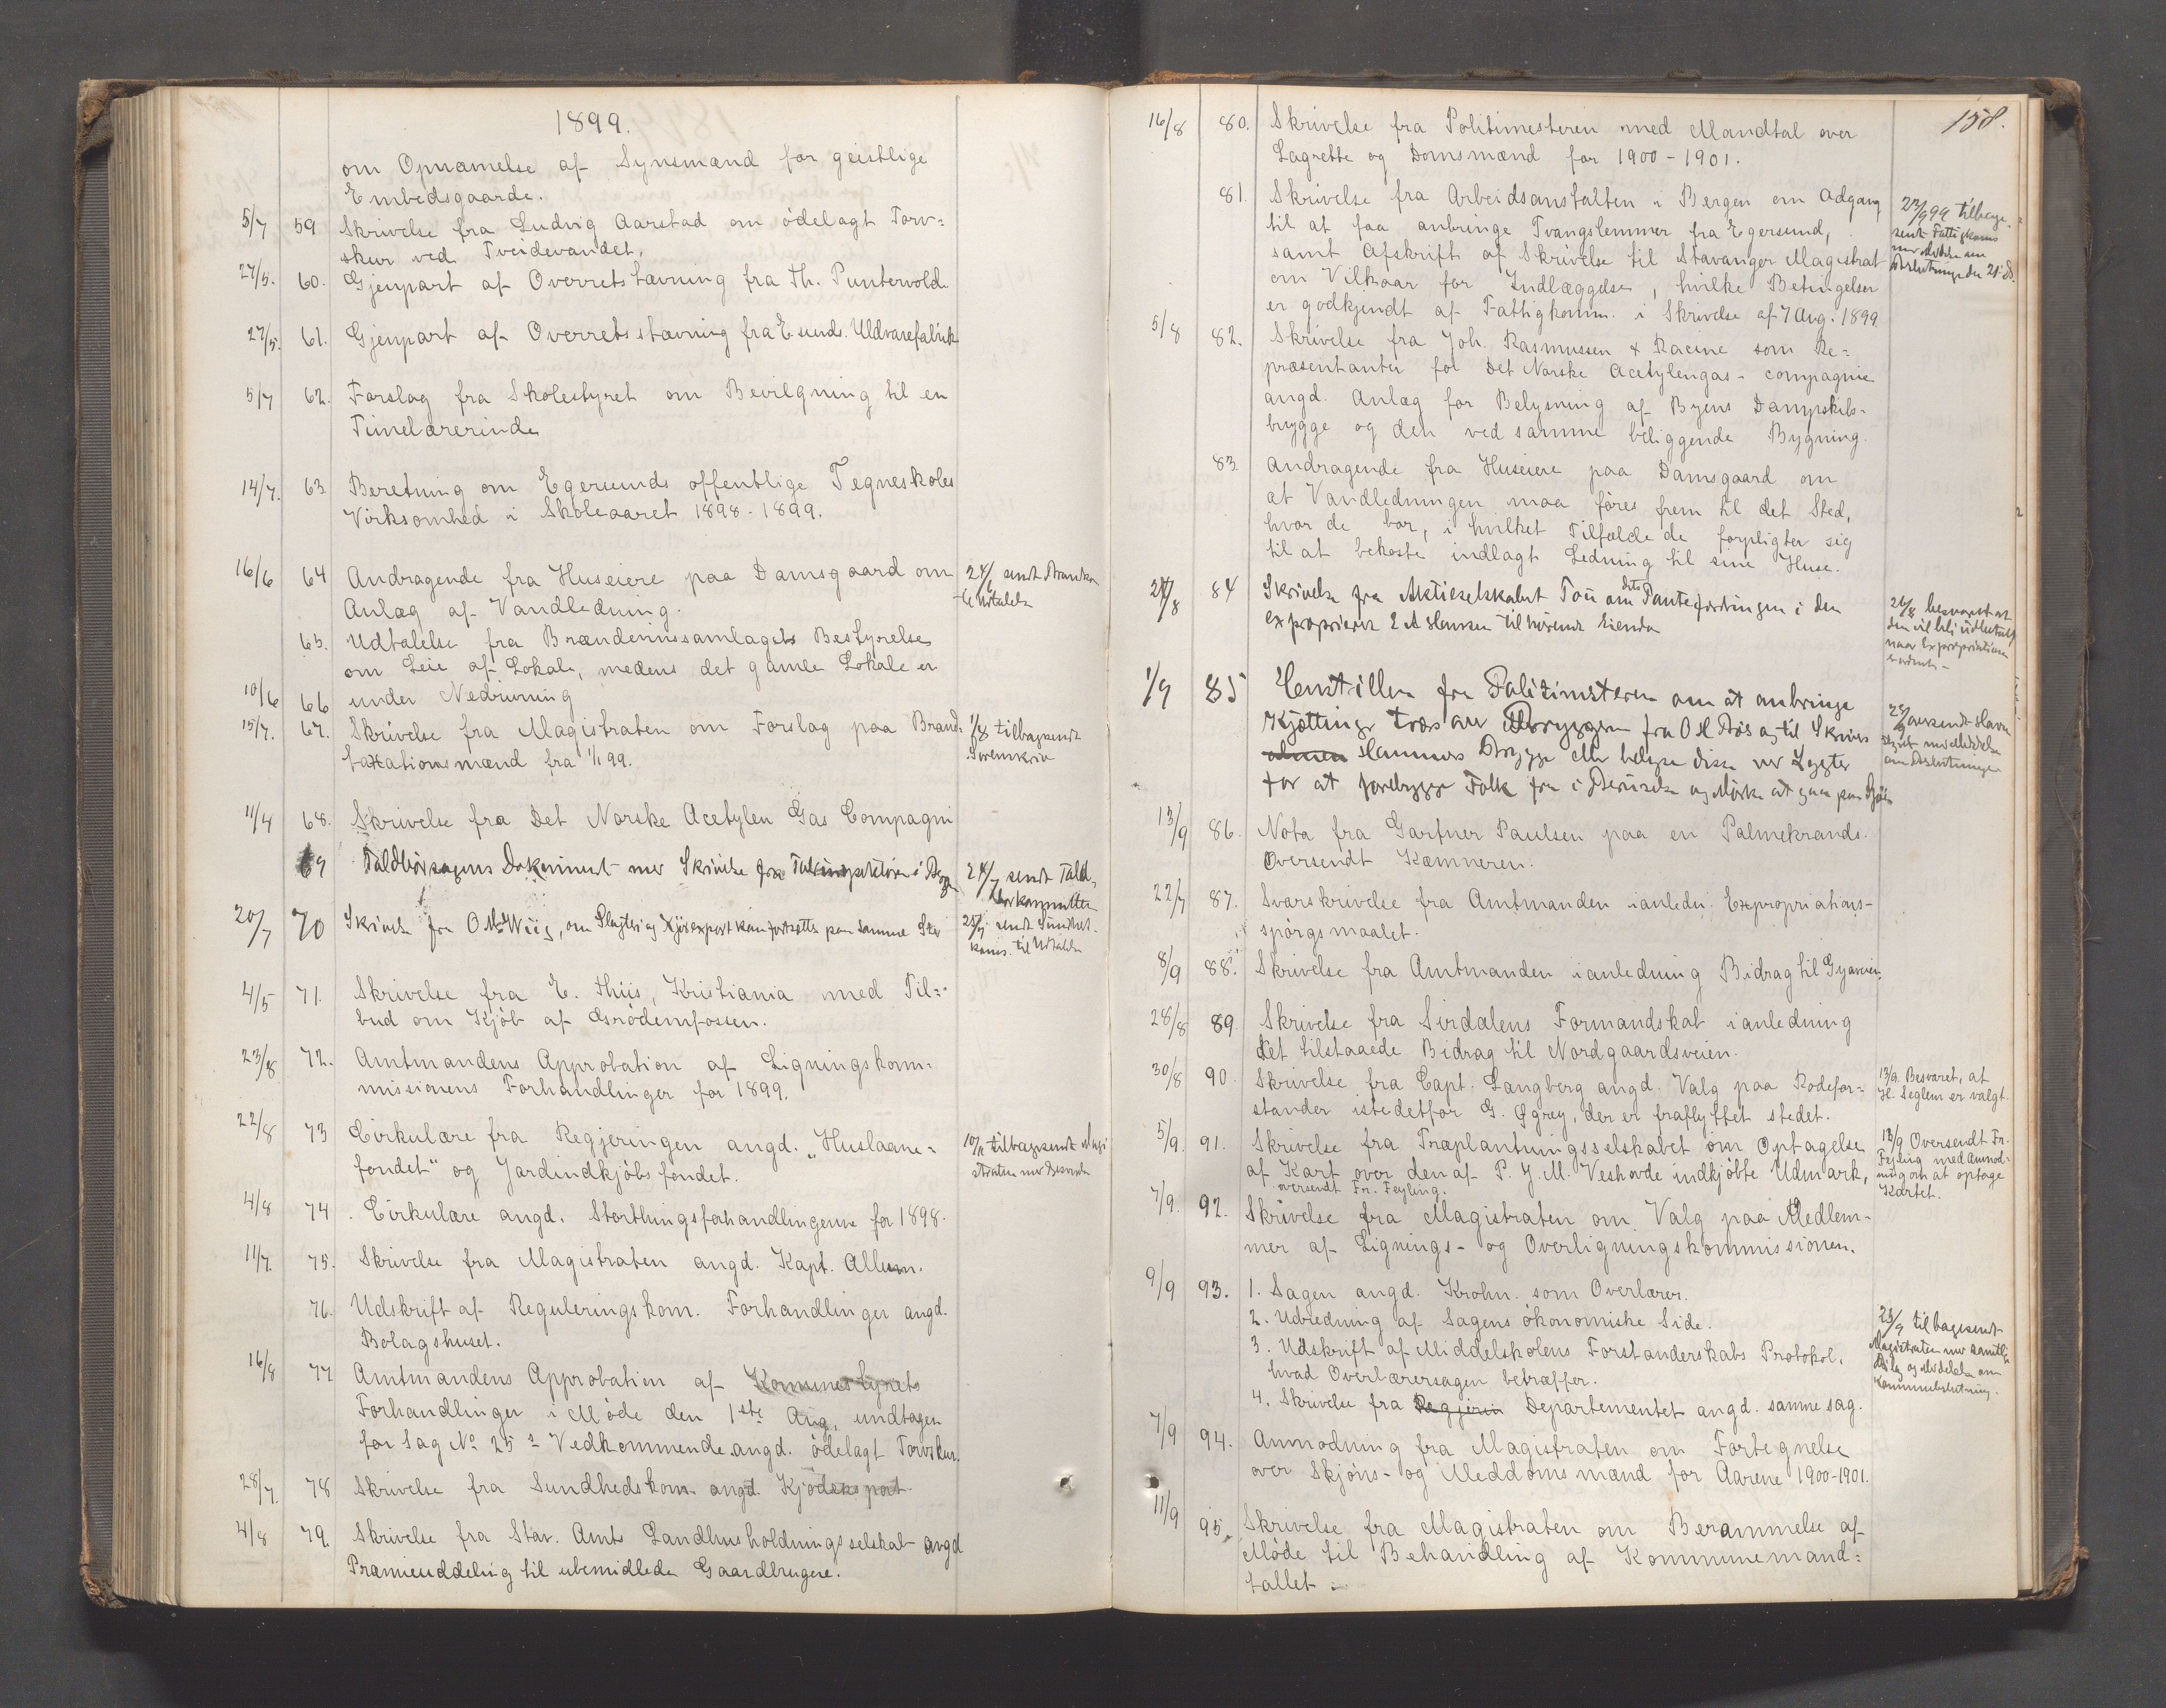 1899.
om Opnævnelse af Synsmænd for geistlige
Embedsgaarde.
5/7 59 Skrivelse fra Ludvig Aarstad om ödelagt Torv=
skur ved Tveidevandet.
27/5. 60. Gjenpart af Overretsstævning fra Th. Puntervold.
27/5. 61. Gjenpart af Overretsstævning fra E.sunds. Uldvarefabrik
5/7 62. Forslag fra Skolestyret om Bevilgning til en
Timelærerinde
14/7. 63. Beretning om Egersunds offentlige Tegneskoles
Virksomhed i Skoleaaret 1898-1899.
16/6 64 Andragende fra Huseiere paa Damsgaard om
Anlæg af Vandledning.
24/6 sendt
til Udtalelse
65. Udtalelse fra Brændevinssamlagets Bestyrelse
om Leie af Lokale, medens det gamle Lokale er
10/6 66 under Nedrivning
15/7. 67. Skrivelse fra Magistraten om Forslag paa Brand=
taxationsmænd fra 1/1 99.
1/8 tilbagesendt
Sorenskriv
11/4 68. Skrivelse fra Det Norske Acetylen Gas Compagni
69 Toldbodsagens Dokument med Skrivelse fra Toldinspektören i Bergen
24/7 sendt Told-
bodkomiteen
20/7 70 Skrivelse fra O. M. Wiig, om Slagteri og Kjödexport kan fortsættes paa samme Sted
sendt Sundhets-
kom. til Udtalelse
4/5 71. Skrivelse fra E. Thiis, Kristiania med Til=
bud om Kjöb af Grödemfossen.
23/8 72. Amtmandens Approbation af Ligningskom=
missionens Forhandlinger for 1899.
22/8 73 Cirkulære fra Regjeringen angd. "Huslaane=
fondet" og Jordindkjöbsfondet.
10/11 tilbagesendt Magi
straten med Besvarelse
4/8 74. Cirkulære angd. Storthingsforhandlingerne for 1898.
11/7. 75. Skrivelse fra Magistraten angd. Kapt. Allum.
76. Udskrift af Reguleringskom. Forhandlinger angd.
Bolagshuset.
16/8 77 Amtmandens Approbation af Komunestyrets
Forhandlinger i Möde den 1ste Aug. undtagen
for Sag No 25 = Vedkommende angd. ödelagt Torvskur.
28/7. 78 Skrivelse fra Sundhedskom. angd. Kjödexport.
4/8 79. Skrivelse fra Stav. Amts Landhusholdningsselskab angd
Præmieuddeling til ubemidlede Gaardbrugere.
158.
16/8 80. Skrivelse fra Politimesteren med Mandtal over
Lagrette og Domsmænd for 1900-1901.
81. Skrivelse fra Arbeidsanstalten i Bergen om Adgang
til at faa anbringe Tvangslemmer fra Egersund,
samt Afskrift af Skrivelse til Stavanger Magistrat
om Vilkaar for Indlæggelse, hvilke Betingelser
er godkjendt af Fattigkomm. i Skrivelse af 7 Aug. 1899.
23/9 99 tilbage-
sendt Fattigkoms
med Meddelse om
Beslutninger den 21. ds.
5/8 82. Skrivelse fra Joh. Rasmussen & Racine som Re=
præsentanter for Det Norske Acetylengas-compagnie
angd. Anlæg for Belysning af Byens Dampskibs-
brygge og den ved samme beliggende Bygning.
83. Andragende fra Huseiere paa Damsgaard om
at Vandledningen maa föres frem til det Sted,
hvor de bor, i hvilket Tilfælde de forpligter sig
til at bekoste indlagt Ledning til sine Huse.
24/8 84 Skrivelse fra Aktieselskabet Tou om dets Pantefordringen i den
exproprieret E A Hansen tilhörende Eiendom
26/8 besvaret at
den vil bli udbetalt
naar Expropriationen
1/9 85 Henstillen fra Politimesteren om at anbringe
Kjættinger tvers over Bryggen fra O H Aas og til Skrivers
Hammers Brygge eller belyse disse ved Lygter
for at forebygge Folk fra i Beruselse og Mörke at gaa paa Sjöen
oversendt Havne
styret med Meddelelse
om Beslutningen
13/9 86. Nota fra Gartner Paulsen paa en Palmekrands.
Oversendt Kæmneren.
22/7 87. Svarskrivelse fra Amtmanden ianledn. Expropriations-
spörgsmaalet.
8/9 88. Skrivelse fra Amtmanden ianledning Bidrag til Gyaveien.
28/8 89 Skrivelse fra Sirdalens Formandskab ianledning
det tilstaaede Bidrag til Nordgaardsveien.
30/8 90. Skrivelse fra Capt. Langberg angd. Valg paa Rodefor=
stander istedetfor G. Ggrey, der er fraflyttet stedet.
13/9. Besvaret, at
H. Seglem er valgt.
5/9. 91. Skrivelse fra Træplantningsselskabet om Optagelse
af Kart over den af P. J. M. Veshovde indkjöbte Udmark,
oversendt Fr. Feyling.
13/9 Oversendt Fr.
Feyling med Anmod=
ning om at optage
Kartet.
7/9. 92. Skrivelse fra Magistraten om Valg paa Medlem-
mer af Lignings- og Overligningskommissionen.
9/9 93. 1. Sagen angd. Krohn. som Overlærer.
2. Udredning af Sagens ökonomiske Side.
3. Udskrift af Middelskolens Forstanderskabs Protokol,
hvad Overlærersagen betræffer.
4. Skrivelse fra Regjerin Departementet angd. samme sag.
23/9 tilbagesendt
Magistraten med samtlige
Bilag og Meddelelse om
Kommunebeslutning.
7/9 94. Anmodning fra Magistraten om Fortegnelse
over Skjöns- og Meddomsmænd for Aarene 1900-1901.
11/9 95. Skrivelse fra Magistraten om Berammelse af
Möde til Behandling af Kommunemand=
tallet